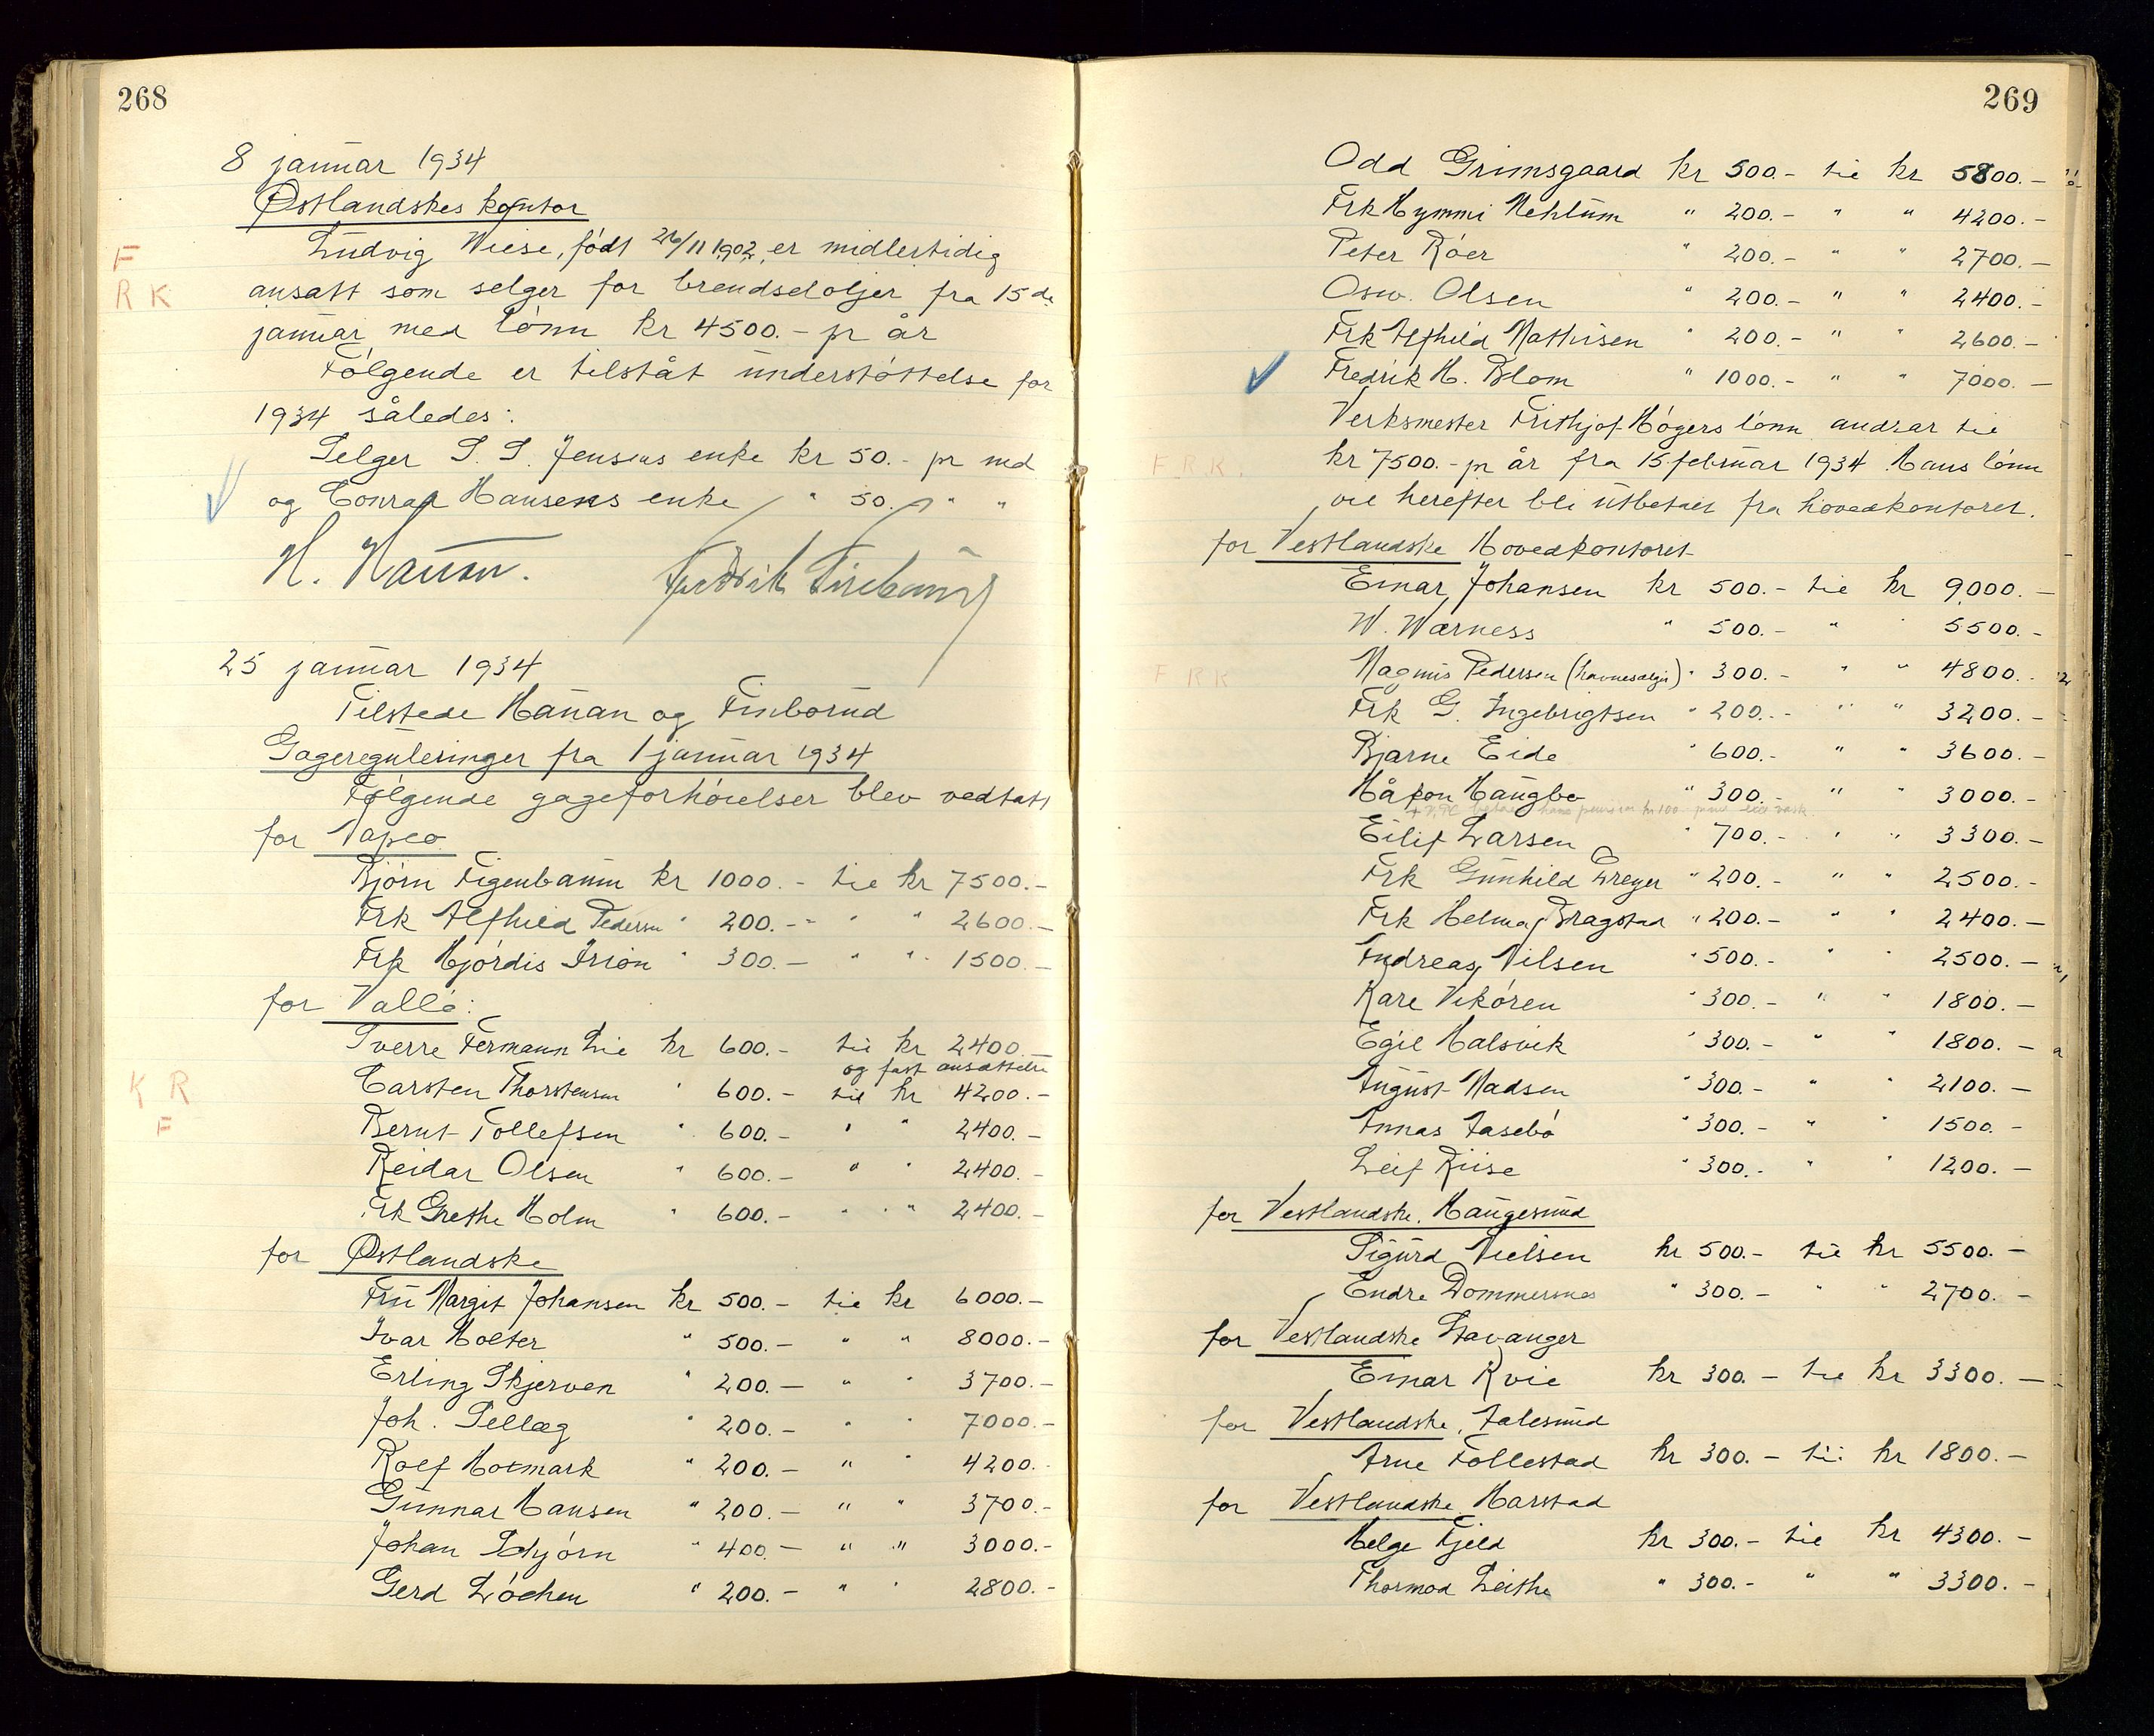 268
8 januar 1934
Østlandskes kontor
F
Ludvig Wiese, født 26/11 1902, er midlertidig
R K
ansatt som selger for brendseloljer fra 15de
januar med lønn kr 4500.- pr år
Følgende er tilståt understøttelse for
1934 således:
Selger S. S. Jensens enke kr 50.- pr md
og Conrad Hansens enke " 50.- " "
H. Hanan. Fredrik
25 januar 1934
Tilstede Hanan og Finborud
Gagereguleringer fra 1 januar 1934
Følgende gageforhøielser blev vedtatt
for Vapco
Bjørn Figenbaum kr 1000.- til kr 7500.-
Frk Alfhild Pedersen " 200.- " " 2600.-
Frk Hjørdis Irion " 300.- " " 1500.-
for Vallø:
Sverre Fermann Lie kr 600.- til kr 2400.-
og fast ansættelse
Carsten Thorstensen " 600.- til kr 4200.-
K R
F
Bernt Tollefsen " 600.- " " 2400.-
Reidar Olsen " 600.- " " 2400.-
Frk Grethe Holm " 600.- " " 2400.-
for Østlandske
Fru Margit Johansen kr 500.- til kr 6000.-
Ivar Holter " 500.- " " 8000.-
Erling Skjerven " 200.- " " 3700.-
Joh. Sellæg " 200.- " " 7000.-
Rolf Hotmark " 200.- " " 4200.-
Gunnar Hansen " 200.- " " 3700.-
Johan Schjørn " 400.- " " 3000.-
Gerd Løchen " 200.- " " 2800.-
269
Odd Grimsgaard kr 500.- til kr 5800.-
Frk Hymmi Mehlum " 200.- " " 4200.-
Peter Røer " 200.- " " 2700.-
Osw. Olsen " 200.- " " 2400.-
Frk Alfhild Mathisen " 200.- " " 2600.-
Fredrik H. Blom " 1000.- " " 7000.-
Verksmester Frithjof Høgers lønn andrar til
F R K.
kr 7500.- pr år fra 15 februar 1934. Hans lønn
vil herefter bli utbetalt fra hovedkontoret.
for Vestlandske Hovedkontoret
Einar Johansen kr 500.- til kr 9000.-
W. Warness " 500.- " " 5500.-
F R K
Magnus Pedersen (havnesælger) " 300.- " " 4800.-
Frk G. Ingebrigtsen " 200.- " " 3200.-
Bjarne Eide " 600.- " " 3600.-
Håkon Haugbo " 300.- " " 3000.-
Eilif Larsen " 700.- " " 3300.-
Frk Gunhild Dreyer " 200.- " " 2500.-
Frk Helma Bragstad " 200.- " " 2400.-
Andreas Nilsen " 500.- " " 2500.-
Kåre Vikøren " 300.- " " 1800.-
Egil Halsvik " 300.- " " 1800.-
August Madsen " 300.- " " 2100.-
Annas Aasebø " 300.- " " 1500.-
Leif Riise " 300.- " " 1200.-
for Vestlandske, Haugesund
Sigurd Nielsen kr 500.- til kr 5500.-
Endre Dommersnes " 300.- " " 2700.-
for Vestlandske Stavanger
Einar Kvie kr 300.- til kr 3300.-
for Vestlandske, Aalesund
Arne Follestad kr 300.- til kr 1800.-
for Vestlandske Harstad
Helge Fjeld kr 300.- til kr 4300.-
Thormod Leithe " 300.- " " 3300.-